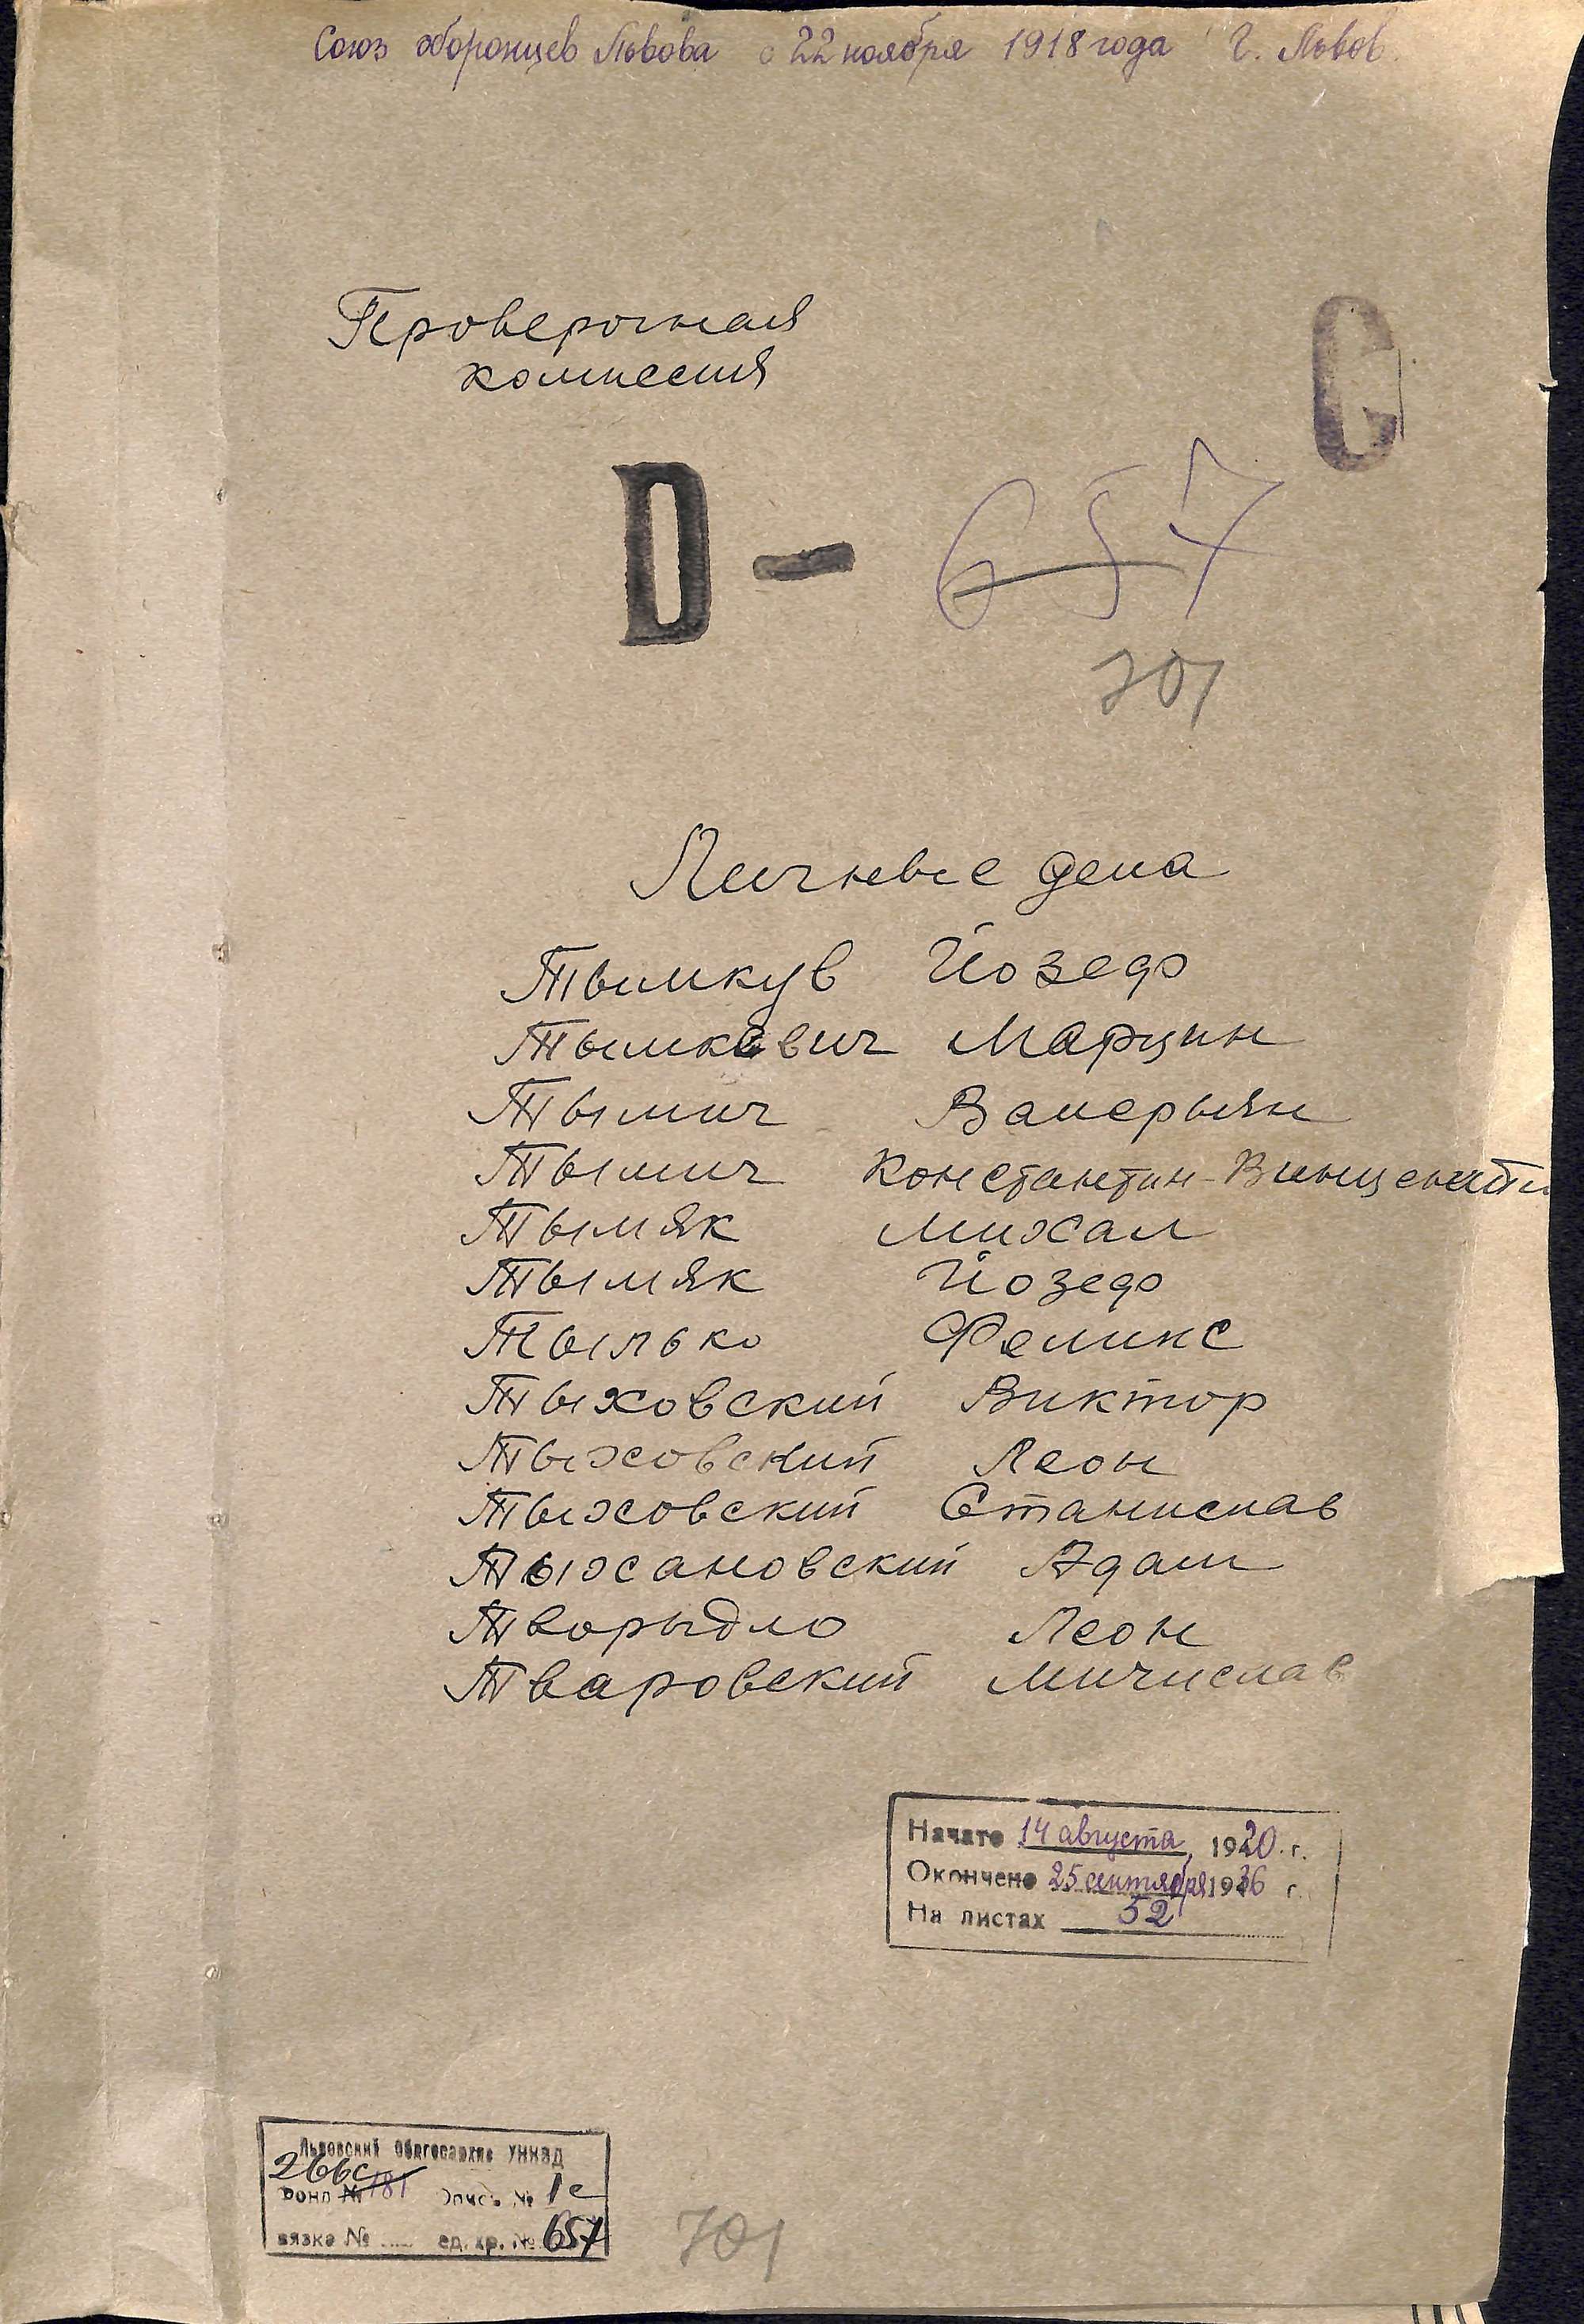 Союз оборонцев Львова с 22 ноября 1918 года г. Львов.
Проверочная
комиссия
С
D - 657
701
Личные дела
Тымкув Йозеф
Тымкевич Марцин
Тымич Валерыян
Тымич Константин-Винценты
Тымяк Михал
Тымяк Йозеф
Тылько Феликс
Тыховский Виктор
Тыховский Леон
Тыховский Станислав
Тыхановский Адам
Творыдло Леон
Тваровский Мичислав
Начато 14 августа 1920 г.
Окончено 25 сентября 1936 г.
На листах 52
Львовский Облгосархив УНКВД
266с
Фонд № 181 Опись № 1с
вязка № ед. хр. № 657
701